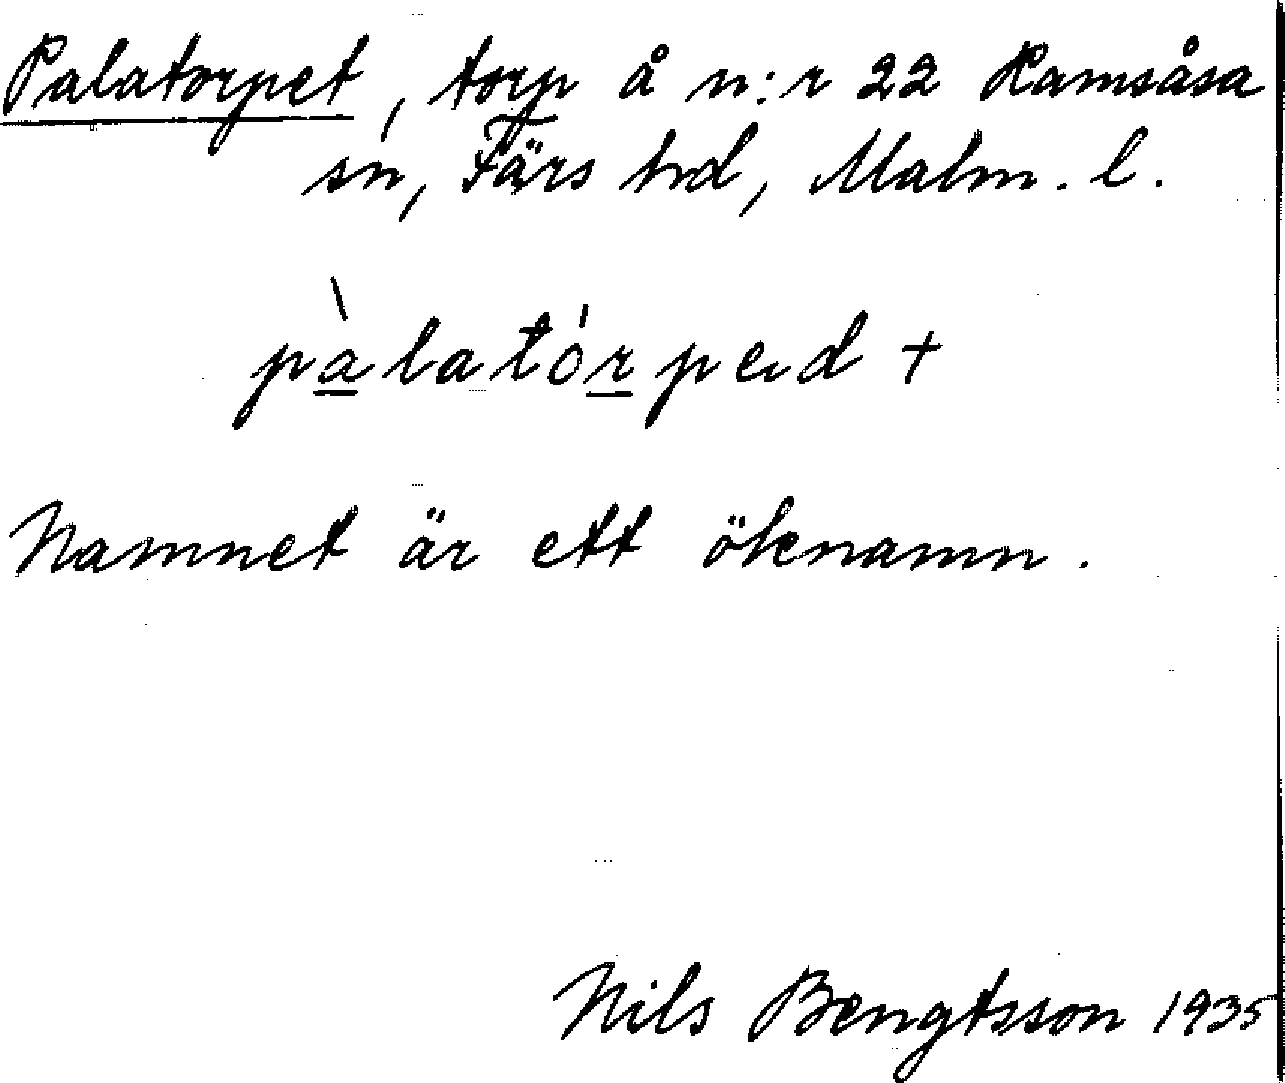 Palatorpet, torp å n:r 22 Ramsåsa
sn, Färs hd, Malm. l.
pàlatórped +
Namnet är ett öknamn.
Nils Bengtsson 1935